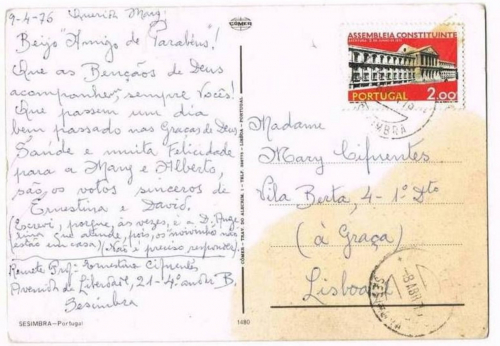 9-4-76 Querida Mary,
Beijo "Amigo de Parabéns"!
Que as Bençãos de Deus
acompanhem, sempre Vocês!
Que passem um dia
bem passado nas Graças de Deus,
Saúde e muita Felicidade
para a Mary e Alberto,
são, os votos sinceros de
Ernestina e David.
(Escrevi, porque, às vezes, é a D.
atende, pois, os não
estão em casa) (Não é preciso responder)
Remete Ernestina Cifuentes
Avenida da Liberdade, 21-4º andar B.
Sesimbra
SESIMBRA—Portugal
CÔMER
CÔMER - TRAV. DO ALECRIM, 1 - LISBOA - PORTUGAL
1480
ASSEMBLEIA CONSTITUINTE
PORTUGAL 2.00
SESIMBRA
Madame
Mary Cifuentes
Vila Berta, 4-1º Dto
(à Graça)
Lisboa
SESIMBRA